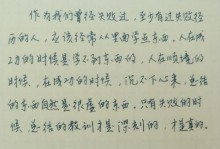 作为我的曾经失败过，至少有过失败经
历的人，应该经常从里面学点东西。人在成
功的时候是学不到东西的，人在顺境的
时候，在成功的时候，沉不下心来，总结
的东西自然是很虚的东西。只有失败的时
候，总结的教训才是深刻的，才是真的。